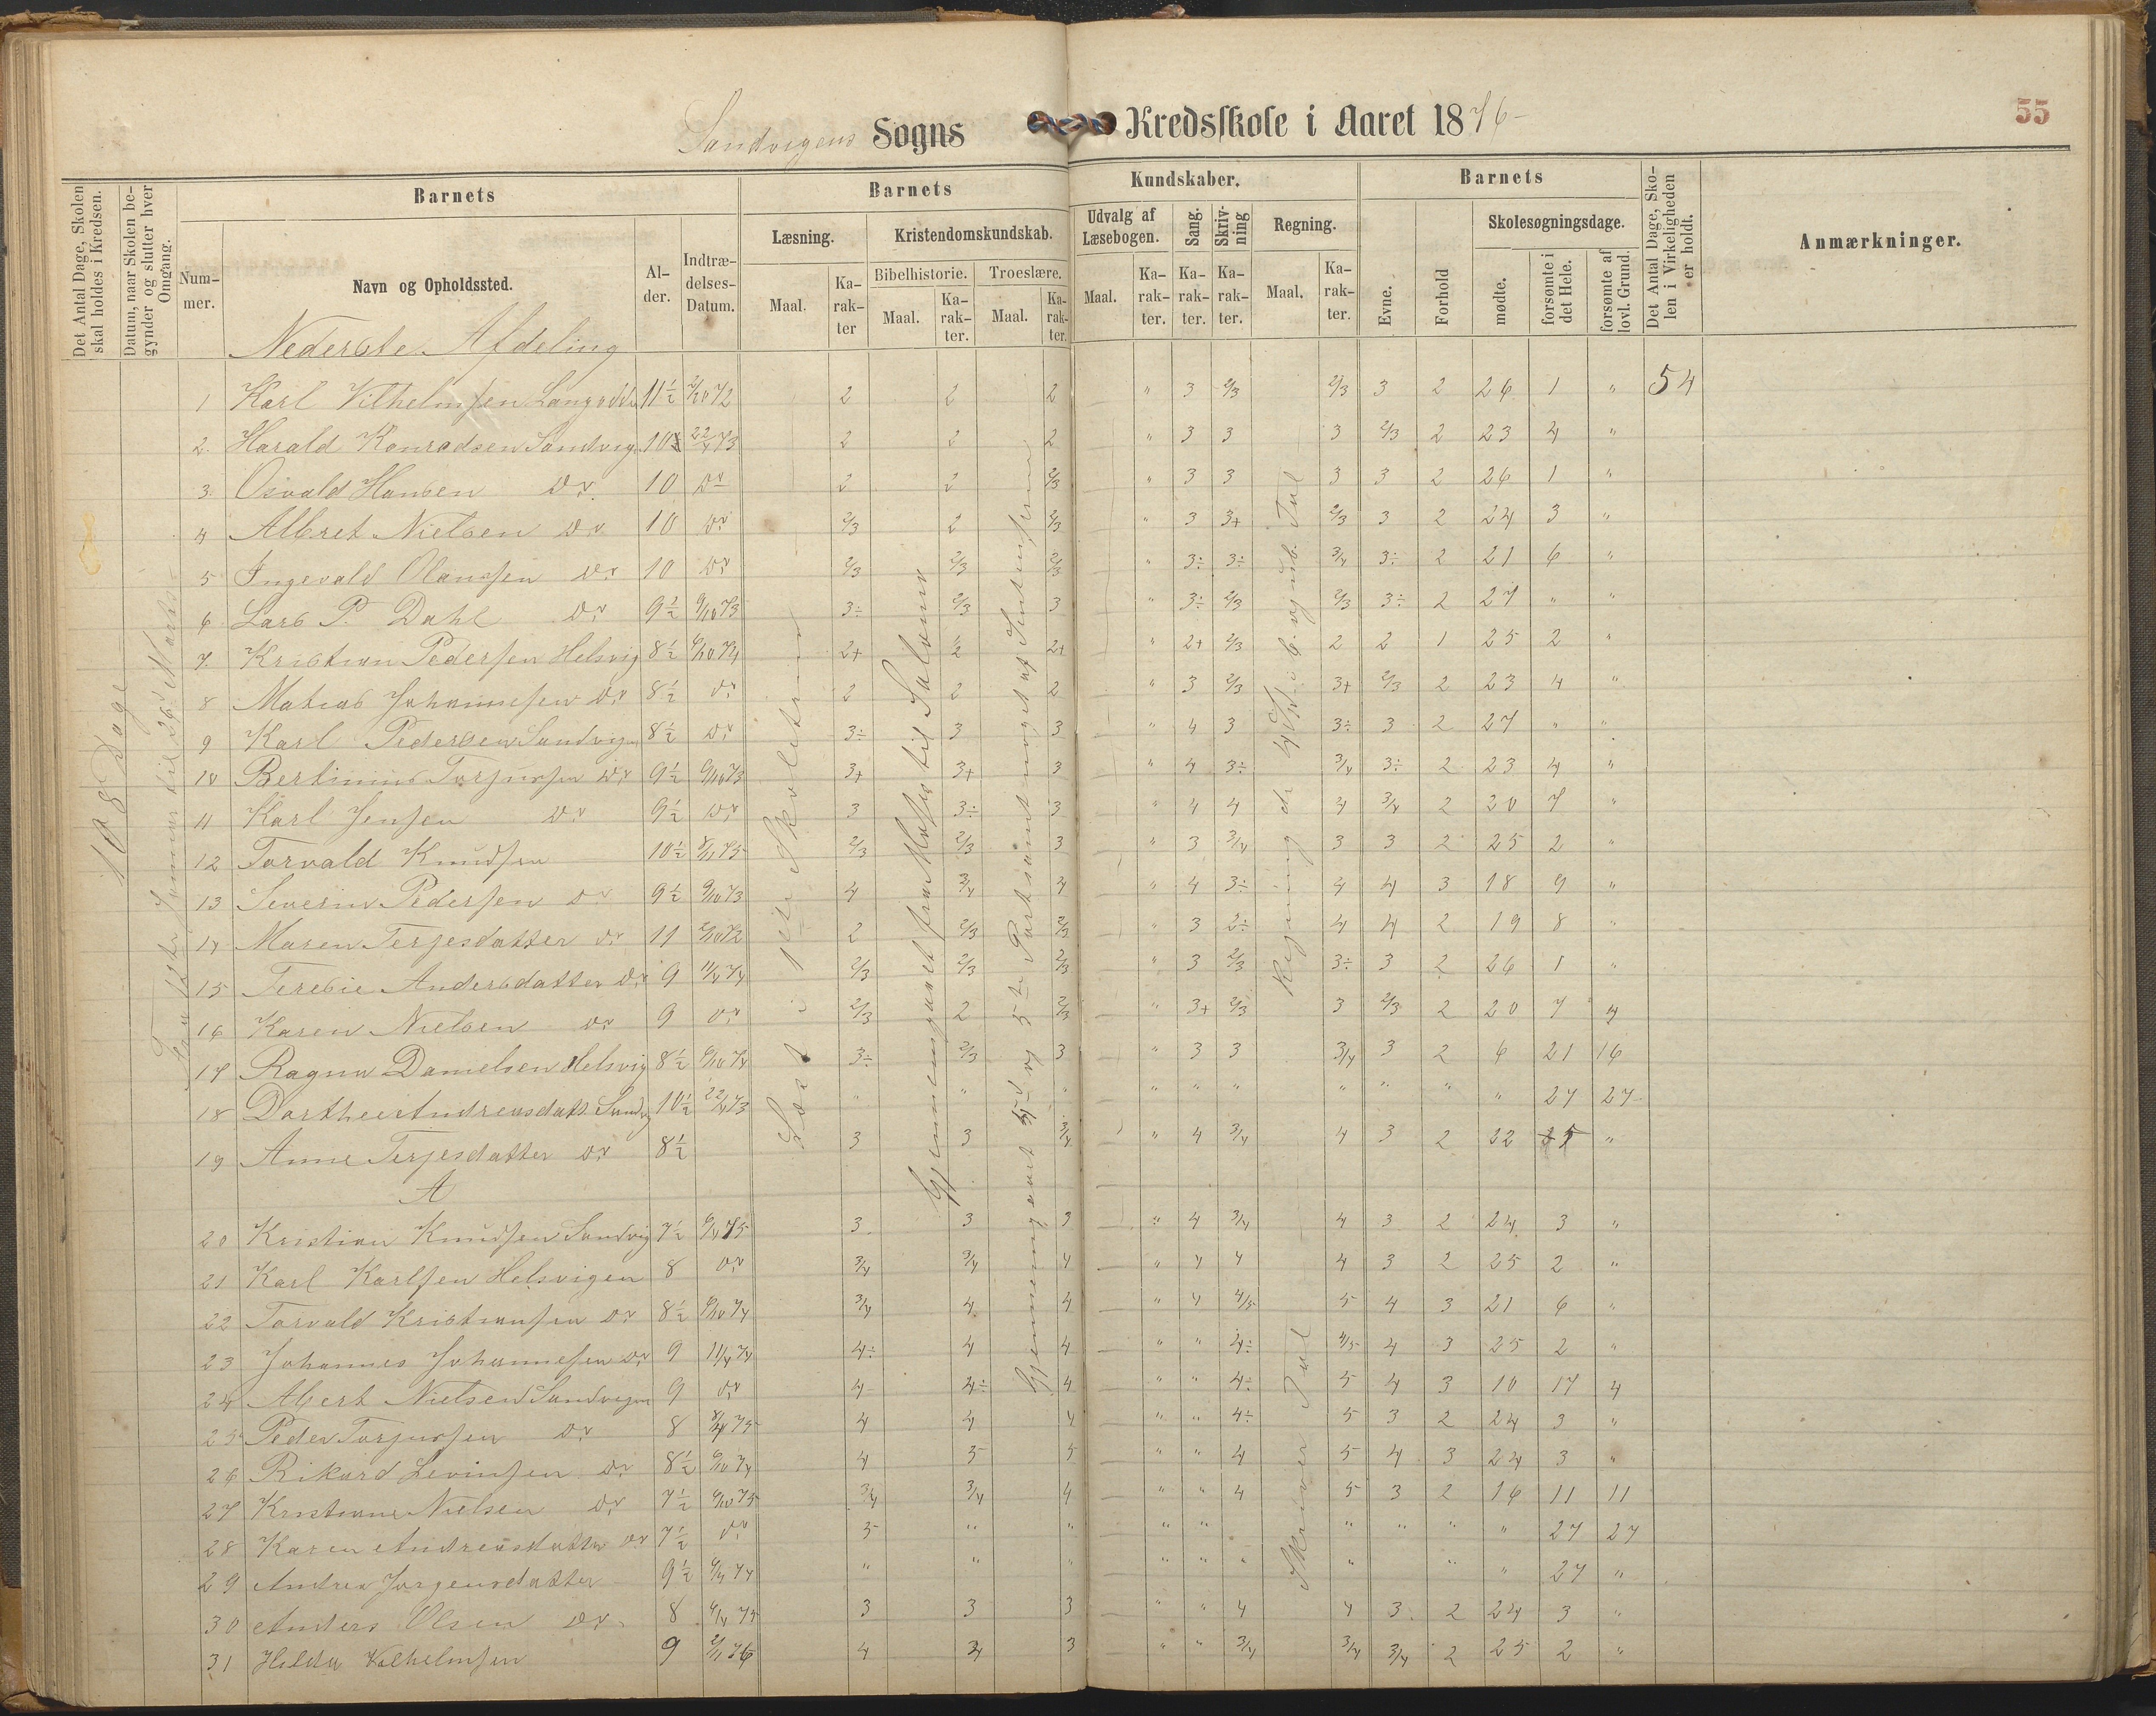 Sandvigens Sogns Kredsskole i Aaret 1876
55
Det Antal Dage, Skolen skal holdes i Kredsen.
Datum, naar Skolen begynder og slutter hver Omgang.
Barnets
Nummer.
Navn og Opholdssted.
Alder.
Indtrædelses-Datum.
Barnets Kundskaber.
Læsning.
Maal.
Karakter
Kristendomskundskab.
Bibelhistorie.
Maal.
Karakter.
Troeslære.
Maal.
Karakter.
Udvalg af Læsebogen.
Maal.
Karakter.
Sang.
Karakter.
Skrivning
Karakter.
Regning.
Maal.
Karakter.
Barnets
Evne.
Forhold
Skolesøgningsdage.
mødte.
forsømte i det Hele.
forsømte af lovl. Grund.
Det Antal Dage, Skolen i Virkeligheden er holdt.
Anmærkninger.
Nederste Afdeling
108 Dage
1 Karl Vilhelmsen 11½ 2 2 2 " 3 2/3 2/3 3 2 26 1 " 54
2 Harald Konradsen Sandvig 22/4 73 2 2 2 " 3 3 3 2/3 2 23 4 "
3 Osvald Hansen Do 10 Do 2 2 2/3 " 3 3 3 3 2 26 1 "
4 Albret Nielsen Do 10 Do 2/3 2 2/3 " 3 3+ 2/3 3 2 24 3 "
5 Ingevald Olaussen Do 10 Do 2/3 2/3 2/3 " 3÷ 3÷ 3/4 3÷ 2 21 6 "
6 Lars P. Dahl Do 9½ 9/10 73 3÷ 2/3 3 " 3÷ 2/3 2/3 3÷ 2 27 " "
7 Kristian Pedersen Helsvig 8½ 6/10 74 2+ ½ 2+ " 2+ 2/3 2 2 1 25 2 "
8 Matias Johannesen Do 8½ Do 2 2 2 " 3 2/3 3+ 2/3 2 23 4 "
9 Karl Pedersen Sandvigen 8½ Do 3÷ 3 3 " 4 3 3÷ 3 2 27 " "
10 Bertinius Torjussen Do 9½ 9/10 73 3+ 3+ 3 " 4 3÷ 3/4 3÷ 2 23 4 "
11 Karl Jensen Do 9½ Do 3 3÷ 3 " 4 4 4 3/4 2 20 7 "
12 Torvald Knudsen 10½ 8/11 75 2/3 2/3 3 " 3 3/4 3 3 2 25 2 "
13 Severin Pedersen Do 9½ 9/10 73 4 3/4 4 " 4 3÷ 4 4 3 18 9 "
14 Maren Terjesdatter Do 11 2/10 72 2 2/3 2/3 " 3 2÷ 4 4 2 19 8 "
15 Teresie Andersdatter Do 9 11/4 74 2/3 2/3 2/3 " 3 2/3 3÷ 3 2 26 1 "
16 Karen Nielsen Do 9 Do 2/3 2 2/3 " 3+ 2/3 3 2/3 2 20 7 4
17 Ragna Danielsen Helsvig 8½ 6/10 74 3÷ 2/3 3 " 3 3 3/4 3 2 6 21 16
18 Dorthea Andreasdatt. Sandvig 10½ 22/4 73 " " " " " " " " " " 27 27
19 Anne Terjesdatter Do 8½ 3 3 3/4 " 4 3/4 4 3 2 22 5 "
A
20 Kristian Knudsen Sandvig 7½ 6/4 75 3 3 3 " 4 3/4 4 3 2 24 3 "
21 Karl Karlsen Helsvigen 8 Do 3/4 3/4 4 " 4 4 4 3 2 25 2 "
22 Torvald Kristiansen Do 8½ 6/10 74 3/4 4 4 " 4 4/5 5 4 3 21 6 "
23 Johannes Johannesen Do 9 11/4 74 4÷ 4 4 " " 4÷ 4/5 4 3 25 2 "
24 Albert Nielsen Sandvigen 9 Do 4 4÷ 4 " " 4÷ 5 4 3 10 17 4
25 Peder Torjussen Do 8 75 4 4 4 " " 4÷ 5 3 2 24 3 "
26 Rikard Levinsen Do 8½ 6/10 74 4 5 5 " " 4 5 4 3 24 3 "
27 Kristiane Nielsen Do 7½ 75 3/4 3/4 4 " " 4 5 3 2 16 11 11
28 Karen Andreasdatter Do 7½ Do 5 " " " " " " " " 27 27
29 Andrea Jørgensdatter 9½ 74 " " " " " " " " " 27 "
30 Anders Olsen Do 8 6/4 75 3 3 3 " " 4 4 3 2 24 3 "
31 Hilda Vilhelmsen 9 76 4 3 " " 3/4 3/4 3/4 2 25 2 "
Læst i 1ste Skoletrin
Gjennemgaaet fra Moses til Salomo
Gjennemgaaet og 5te Part samt noget af
Regning de 4 Sp. i b. og ub. Tal
Skriver Tal